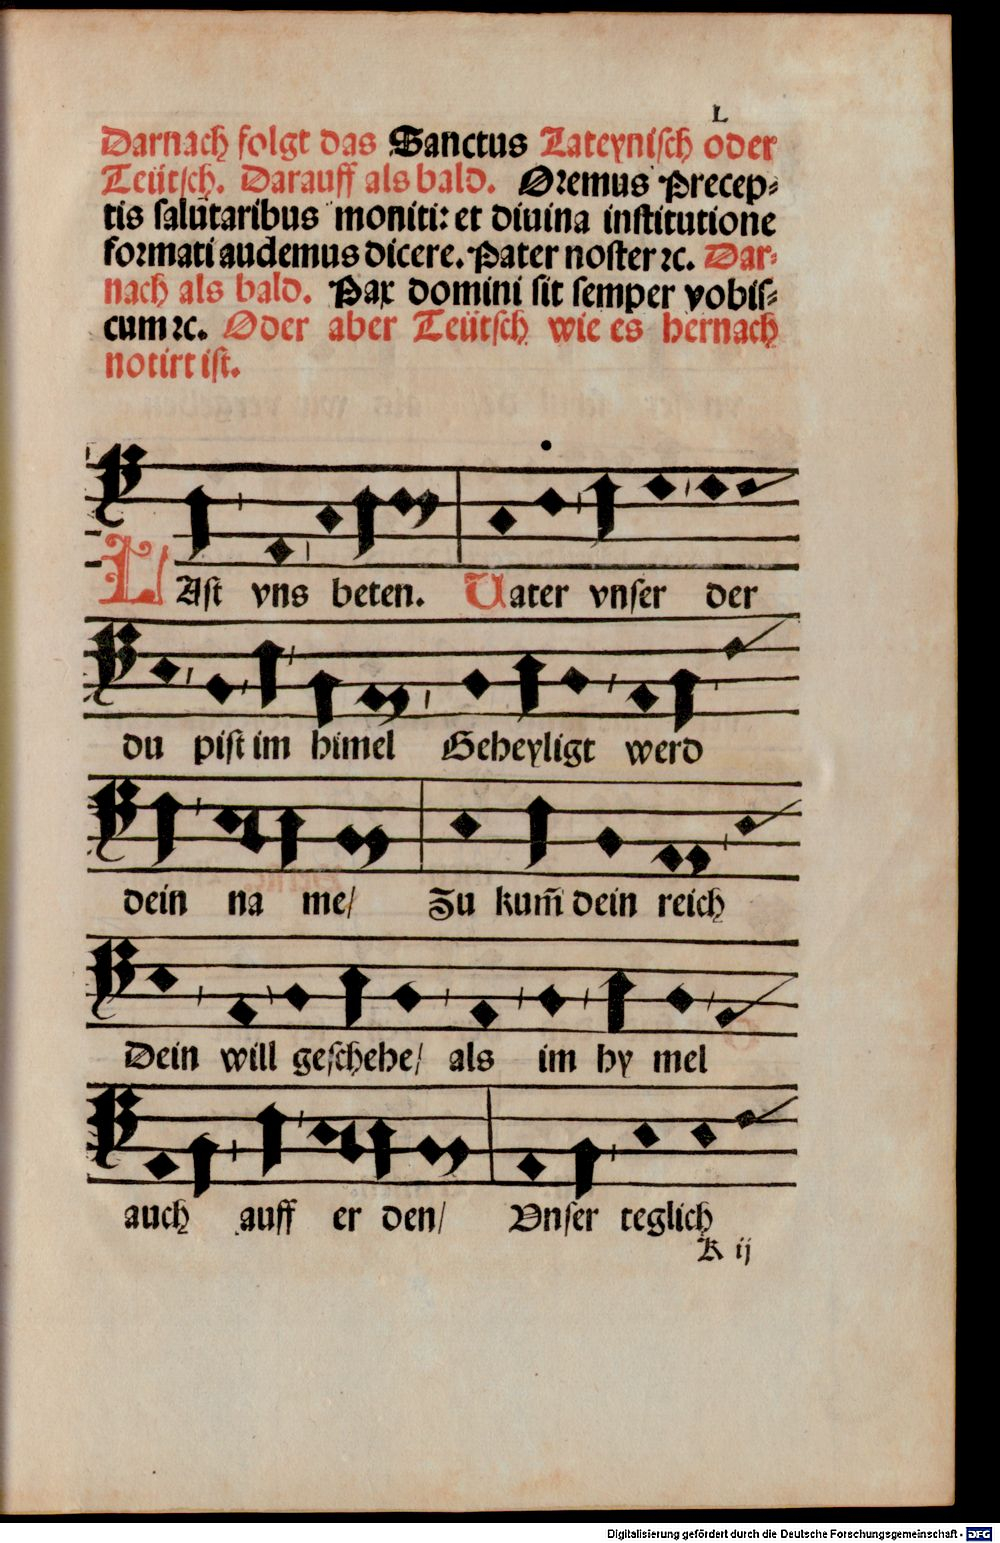 L
Darnach folgt das Sanctus Lateynisch oder
Teütsch. Darauff als bald. Oremus Precep-
tis salutaribus moniti: et diuina institutione
formati audemus dicere. Pater noster ⁊c. Dar-
nach als bald. Pax domini sit semper vobis-
cum ⁊c. Oder aber Teütsch wie es hernach
notirt ist.
LAst vns beten. Uater vnser der
du pist im himel Geheyligt werd
dein na me/ Zu kum̃ dein reich
Dein will geschehe/ als im hy mel
auch auff er den/ Vnser teglich
K ij
Digitalisierung gefördert durch die Deutsche Forschungsgemeinschaft - DFG